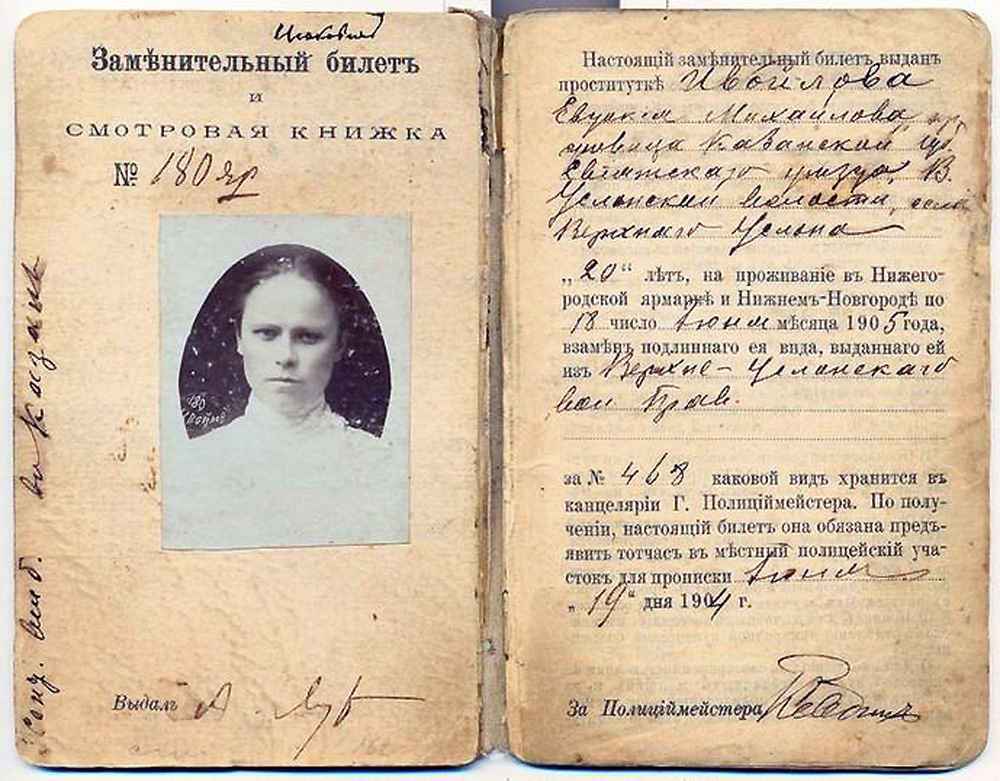 Замѣнительный билетъ
и
СМОТРОВАЯ КНИЖКА
№ 180 яр
180
Выдалъ
въ Казань
Настоящій замѣнительный билетъ выданъ
проституткѣ Ивойлова
Евдокія Михайлова
Казанской губ
уѣзда, В.
Услонской волости, села
Верхняго Услона
„20“ лѣтъ, на проживаніе въ Нижего-
родской ярмаркѣ и Нижнемъ-Новгородѣ по
18 число Іюня мѣсяца 1905 года,
взамѣнъ подлиннаго ея вида, выданнаго ей
изъ Верхне-Услонскаго
вол Прав.
за № 468 каковой видъ хранится въ
канцеляріи Г. Полиціймейстера. По полу-
ченіи, настоящій билетъ она обязана предъ-
явить тотчасъ въ мѣстный полицейскій уча-
стокъ для прописки Іюня
„19“ дня 1904 г.
За Полиціймейстера